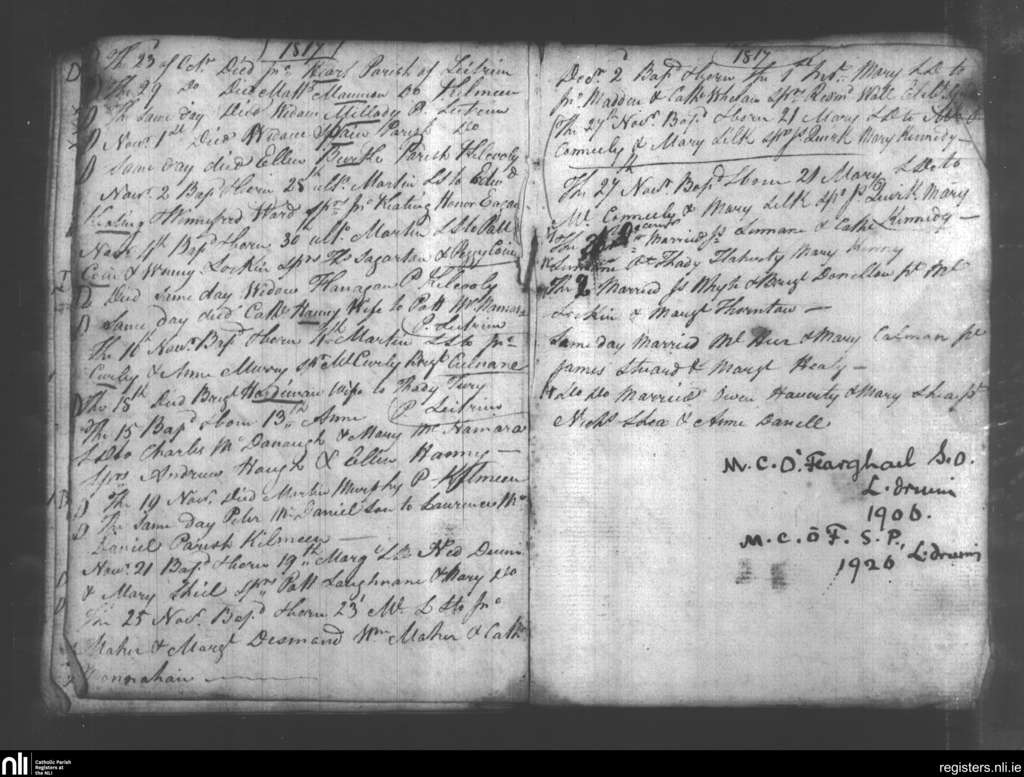 1817
D The 23d of Octr Died Jno Kears Parish of Leitrim
D The 29 Do Died Matts Mannion Do Kilmeen
D The same day Died Widow Millady P. Leitrim
D Novr 1st Died Widow Spain Parish Do
D Same day died Ellen Burke Parish Kilcooly
Novr 2 Bapd & born 28th ulto Martin LS to Edwd
Keating & Winnefred Ward Sprs Jno Keating Honor Eagan
Novr 4th Bapd & born 30 ulto Martin LS to Patt
Coin & Winny Lorkin Sprs Ths Fagarton & Peggy Coin
D Died same day Widow Flanagan P. Kilcooly
D Same day died Cathe Haney Wife to Patt McNamara
P. Leitrim
The 10th Novr Bapd & born Martin LS to Jno
Curly & Anne Murry Sprs Ml Curly Bregt Culnane
D The 15th Died Bregt Hardiman Wife to Thady Fury
P. Leitrim
The 15 Bapd & born 13th Anne
LD to Charles McDanaugh & Mary McNamara
Sprs Andrew Haugh & Ellen Hanny —
D The 19 Novr Died Martin Murphy P. Kilmeen
D The Same day Peter McDaniel Son to Laurence Mc
Daniel Parish Kilmeen —
Novr 21 Bapd & born 19th Margt LD to Ned Dunn
& Mary Shiel Sprs Patt Laughnane & Mary Do
The 25 Novr Bapd & born 23d Ml LS to Jno
Maher & Margt Desmond Wm Maher & Cathe
Monnahan
1817
Decr 2 Bapd & born the 1st Inst Mary LD to
Jno Madden & Cathe Whelan Sprs Redmd Wall
The 27th Novr Bapd & born 21 Mary LD to
Conneely & Mary Silk Sprs Js Quirk Mary Kennedy
The 27th Novr Bapd & born 21 Mary LD to
Ml Conneely & Mary Silk Sprs Js Quirk Mary
Kennedy —
The Married Js Linnane & Cathe
Linnane Pt Thady Flaherty Mary Kenny
The 2 Married Js Whyte & Bregt Donellan pt Ml
Lorkin & Margt Thornton —
Same day Married Ml Hur & Mary Calman pt
James Stuard & Margt Healy —
Do Do Married Owen Haverty & Mary Shea pt
Nichs Shea & Anne Daniell
M. C. O'Fearghail S.O.
L. druim
1906.
M. C. Ó F. S. P., L. druim
1926
nli Catholic Parish
Registers at
the NLI
registers.nli.ie